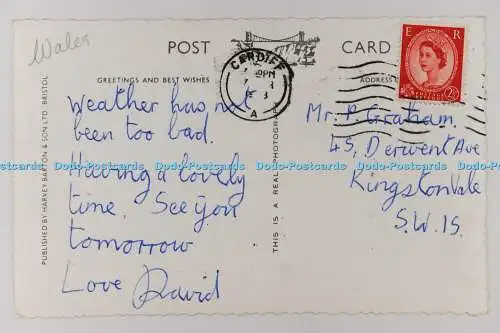 Wales
POST CARD
GREETINGS AND BEST WISHES
ADDRESS
CARDIFF
PM
A
E R
2½
Weather has not
been too bad.
Having a lovely
time. See you
tomorrow
Love David
Mr. P. Graham,
45, Derwent Ave
Kingston Vale
S.W.15.
PUBLISHED BY HARVEY BARTON & SON LTD. BRISTOL.
THIS IS A REAL PHOTOGRAPH
Dodo-Postcards Dodo-Postcards Dodo-Postcards Dodo-Postcards Dodo-Postcards Dodo-Postcards